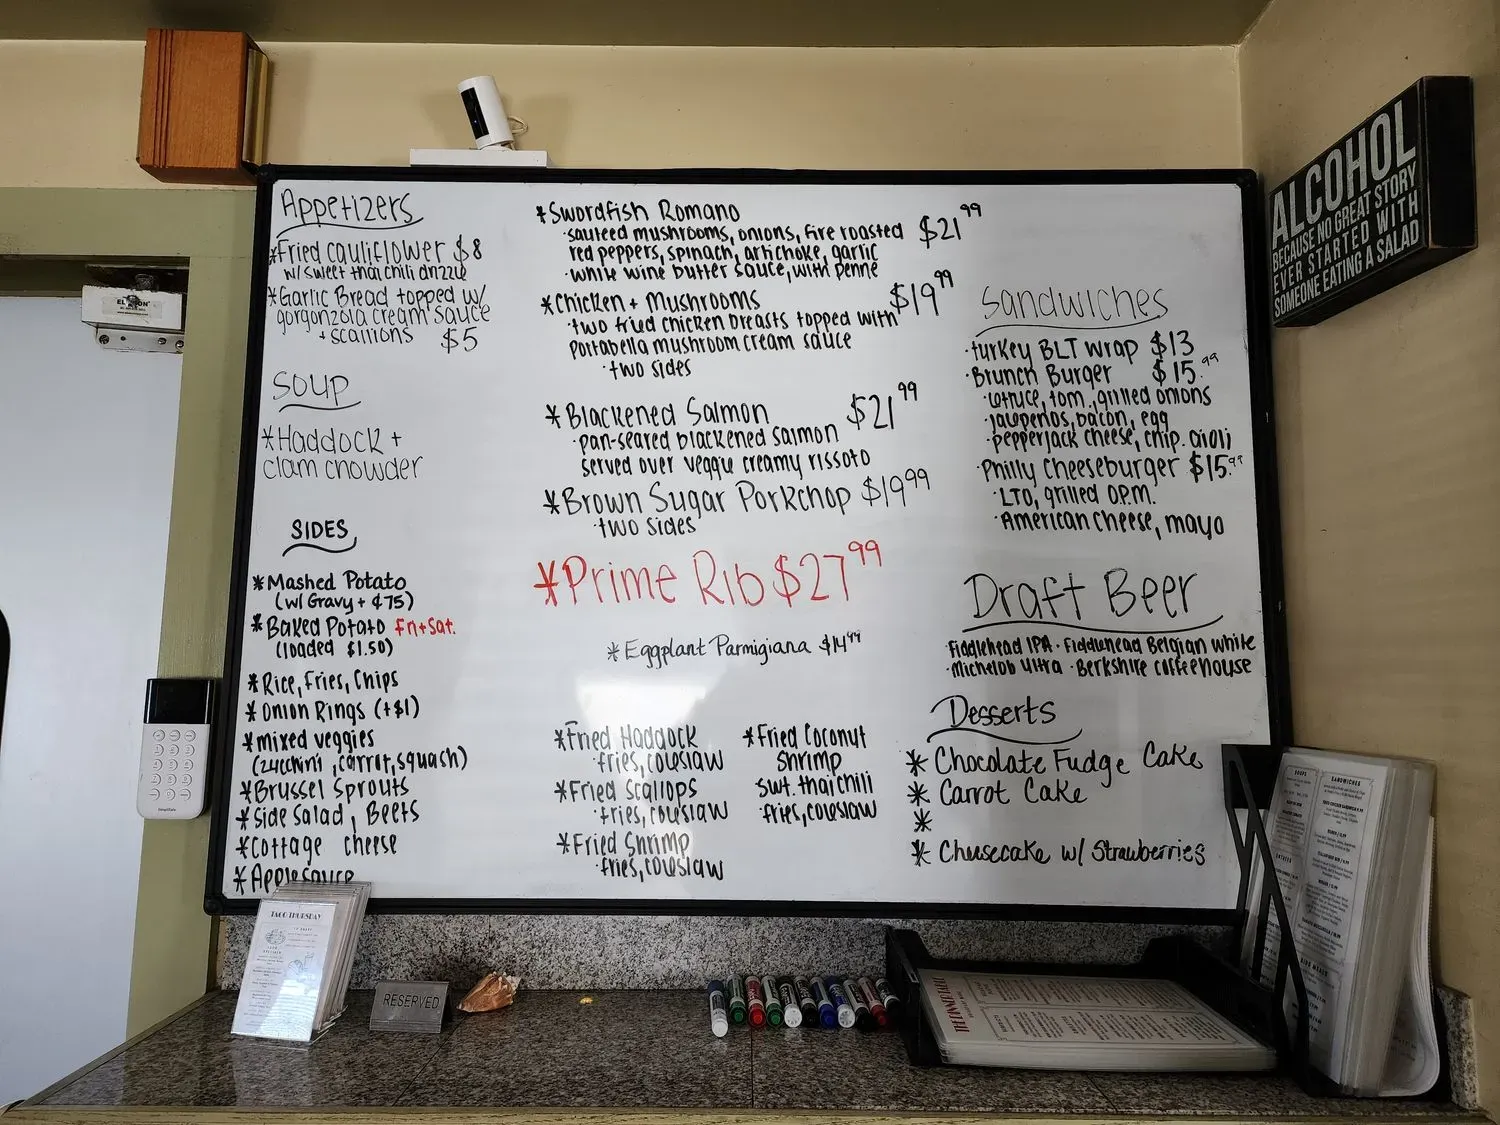 Appetizers
*Fried cauliflower $8
w/sweet thai chili drizzle
*Garlic Bread topped w/
gorgonzola cream sauce
+ scallions $5
Soup
*Haddock +
clam chowder
SIDES
*Mashed Potato
(w/ Gravy + $.75)
*Baked Potato Fri+Sat.
(loaded $1.50)
*Rice, Fries, Chips
*Onion Rings (+$1)
*mixed veggies
(zucchini, carrot, squash)
*Brussel Sprouts
*Side Salad, Beets
*Cottage cheese
*Applesauce
*Swordfish Romano $21.99
·sauteed mushrooms, onions, fire roasted
red peppers, spinach, artichoke, garlic
·white wine butter sauce, with penne
*Chicken + Mushrooms $19.99
·two fried chicken breasts topped with
portabella mushroom cream sauce
·two sides
*Blackened Salmon $21.99
·pan-seared blackened salmon
served over veggie creamy rissoto
*Brown Sugar Porkchop $19.99
·two sides
*Prime Rib $27.99
*Eggplant Parmigiana $14.99
*Fried Haddock
·fries, coleslaw
*Fried Scallops
·fries, coleslaw
*Fried Shrimp
·fries, coleslaw
*Fried Coconut
Shrimp
swt. thai chili
·fries, coleslaw
Sandwiches
·turkey BLT wrap $13
·Brunch Burger $15.99
·lettuce, tom, grilled onions
jalepenos, bacon, egg
·pepperjack cheese, chip. aioli
·Philly Cheeseburger $15.99
·LTO, grilled O.P.M.
·American Cheese, mayo
Draft Beer
·Fiddlehead IPA ·Fiddlehead Belgian White
·Michelob Ultra ·Berkshire Coffeehouse
Desserts
*Chocolate Fudge Cake
*Carrot Cake
*
*Cheesecake w/ Strawberries
ALCOHOL
BECAUSE NO GREAT STORY
EVER STARTED WITH
SOMEONE EATING A SALAD
TACO THURSDAY
RESERVED
SOUPS
SANDWICHES